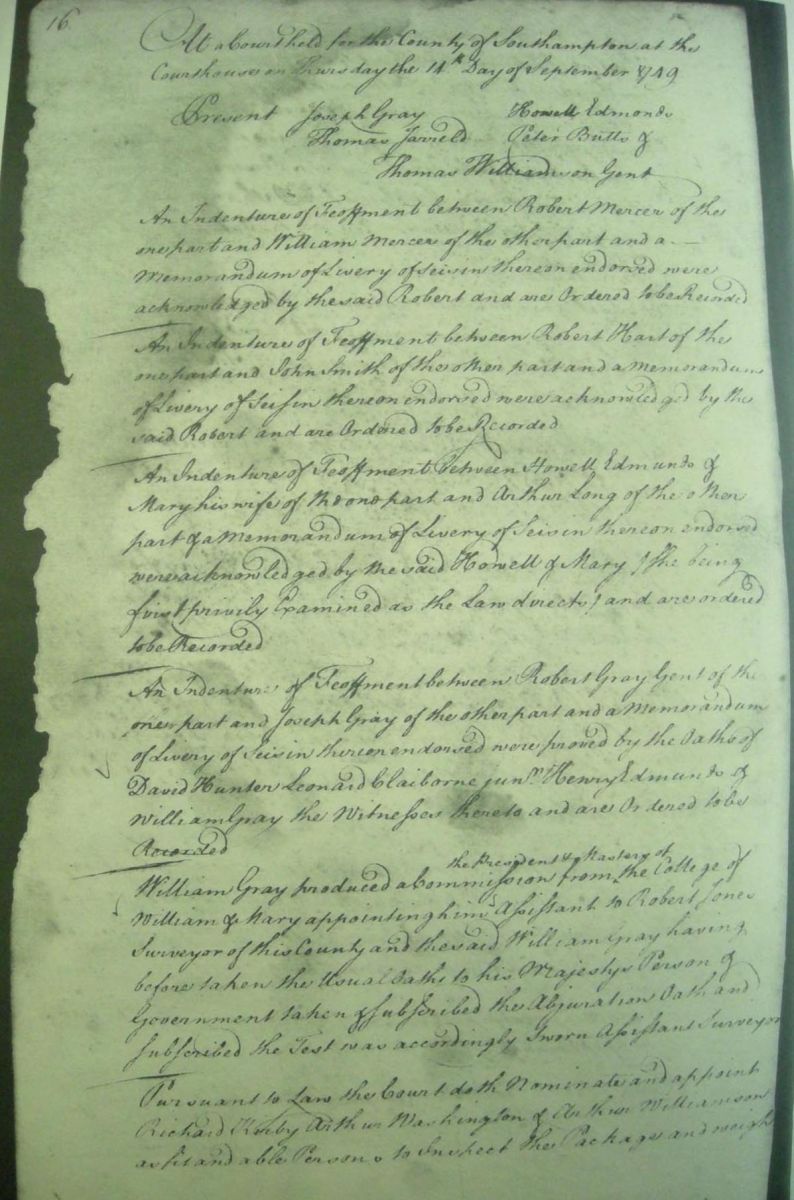 16
At a Court held for the County of Southampton at the
Courthouse on Thursday the 14th Day of September 1749
Present Joseph Gray Howell Edmonds
Thomas Jarreld Peter Butts &
Thomas Williamson Gent
An Indenture of Feoffment between Robert Mercer of the
one part and William Mercer of the other part and a
Memorandum of Livery of Seisin thereon endorsed were
acknowledged by the said Robert and are Ordered to be Recorded
An Indenture of Feoffment between Robert Hart of the
one part and John Smith of the other part and a Memorandum
of Livery of Seisin thereon endorsed were acknowledged by the
said Robert and are Ordered to be Recorded
An Indenture of Feoffment between Howell Edmunds &
Mary his wife of the one part and Arthur Long of the other
part & a Memorandum of Livery of Seisin thereon endorsed
were acknowledged by the said Howell & Mary (she being
first privily Examined as the Law directs) and are ordered
to be Recorded
An Indenture of Feoffment between Robert Gray Gent of the
one part and Joseph Gray of the other part and a Memorandum
of Livery of Seisin thereon endorsed were proved by the Oaths of
David Hunter Leonard Claiborne junr Henry Edmunds &
William Gray the Witnesses thereto and are Ordered to be
Recorded
the President & Masters of
William Gray produced a Commission from the College of
William & Mary appointing him Assistant to Robert Jones
Surveyor of this County and the said William Gray having
before taken the Usual Oaths to his Majestys Person &
Government taken & subscribed the Abjuration Oath and
subscribed the Test was accordingly Sworn Assistant Surveyor
Pursuant to Law the Court doth Nominate and appoint
Richard Kirby Arthur Washington & Arthur Williamson
as fit and able Persons to Inspect the Packages and weigh